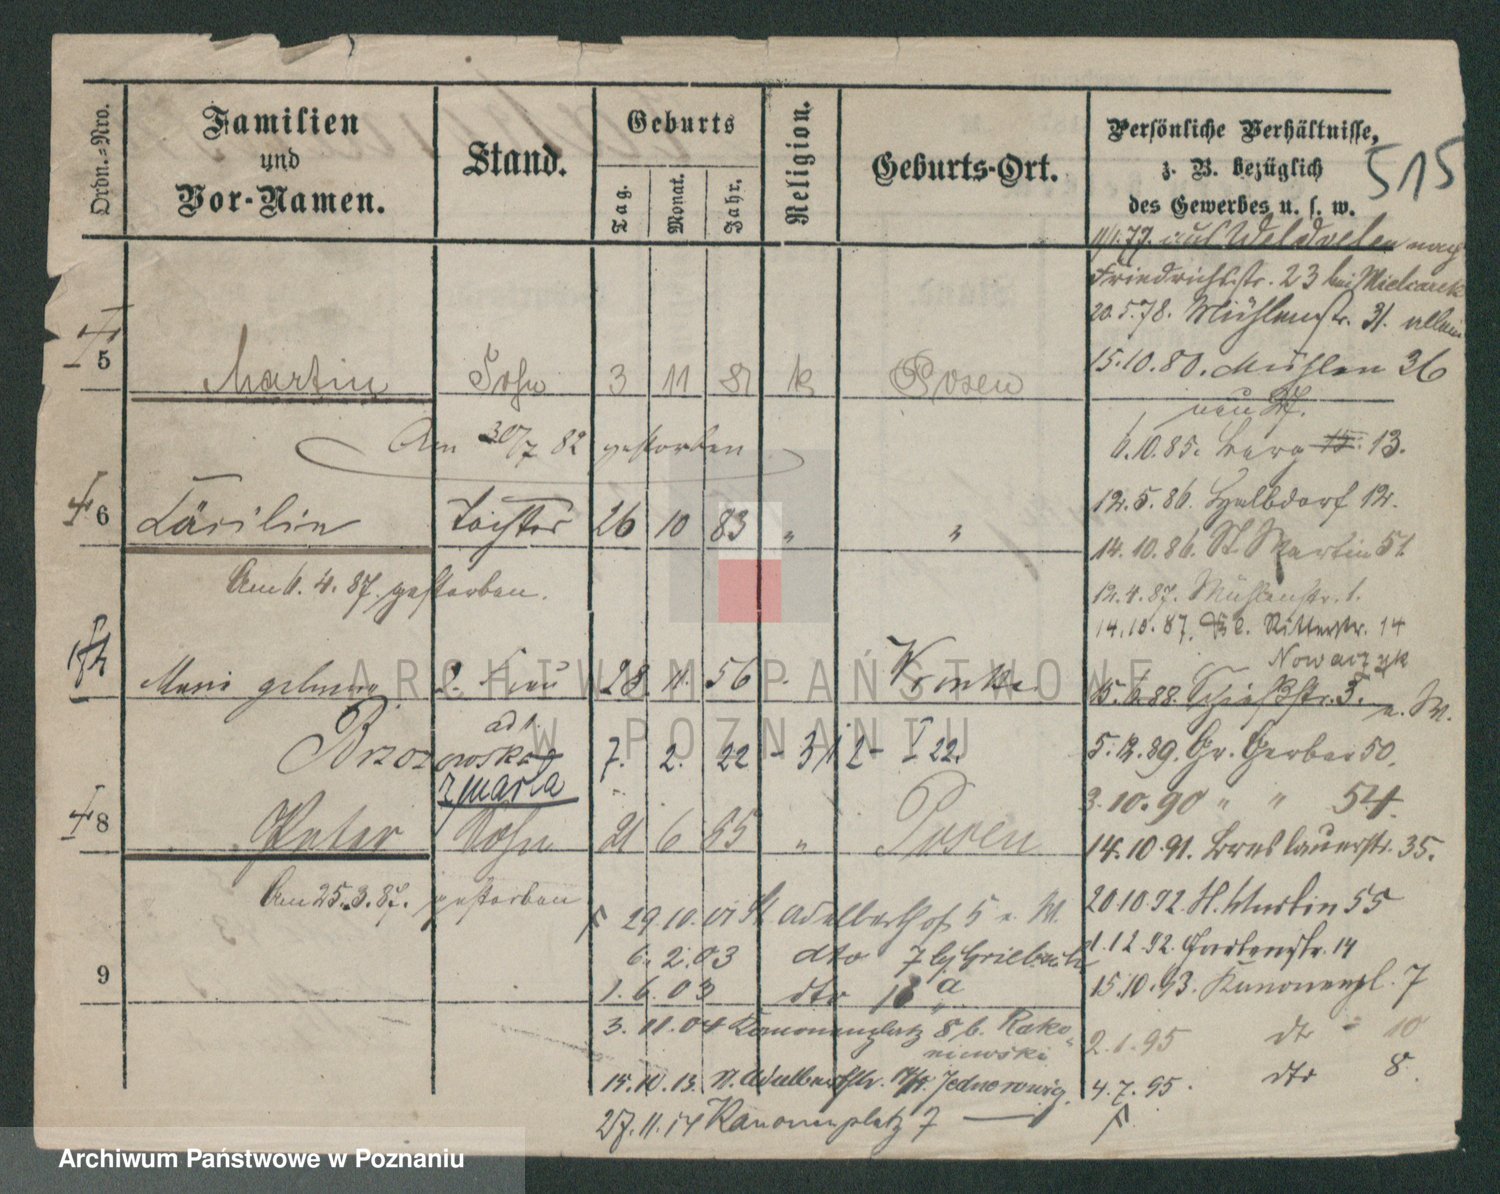 Ordn.-Nro.
Familien
und
Vor-Namen.
Stand.
Geburts
Tag.
Monat.
Jahr.
Religion.
Geburts-Ort.
Persönliche Verhältnisse,
z. B. bezüglich
des Gewerbes u. s. w.
515
Friedrichstr. 23 bei Mielcarek
20.5.78. Mühlenstr. 31. allein
5 Martin Sohn 3 11 81 k Posen
15.10.80. Mühlen 36
Am 30/7 82 gestorben
6.10.85. Berg 15. 13.
6 Cäcilie Tochter 26 10 83 " "
12.5.86. Halbdorf 12.
14.10.86. St. Martin 51
Am 6.4.87. gestorben.
12.4.87. Mühlenstr. 1.
14.10.87. Kl. Ritterstr. 14
Nowaczyk
Marie geborene 2. Frau 28. 11. 56 Wronke
15.6.88. Schießstr. 3. n. W.
Brzozowska
zmarła
7. 2. 22 - 3/12 - V 22.
5.12.89. Gr. Gerber 50.
3.10.90 " " 54.
8 Peter Sohn 21 6 85 " Posen
14.10.91. Breslauerstr. 35.
Am 25.3.87. gestorben
20.10.92. St. Martin 55
29.10.01 St. Adalberthof 5 n. W.
1.12.92. Gartenstr. 14
6. 2. 03 dto 7 bei
9
15.10.93. Kanonenpl. 7
1. 6. 03 dto
3. 11. 04 Kanonenplatz 8 b. Rakoniewski
2.1.95 dto 10
15.10.13. St. Adalbertstr.
4.7.95. dto 8.
27.11.14 Kanonenplatz 7
ARCHIWUM PAŃSTWOWE
W POZNANIU
Archiwum Państwowe w Poznaniu